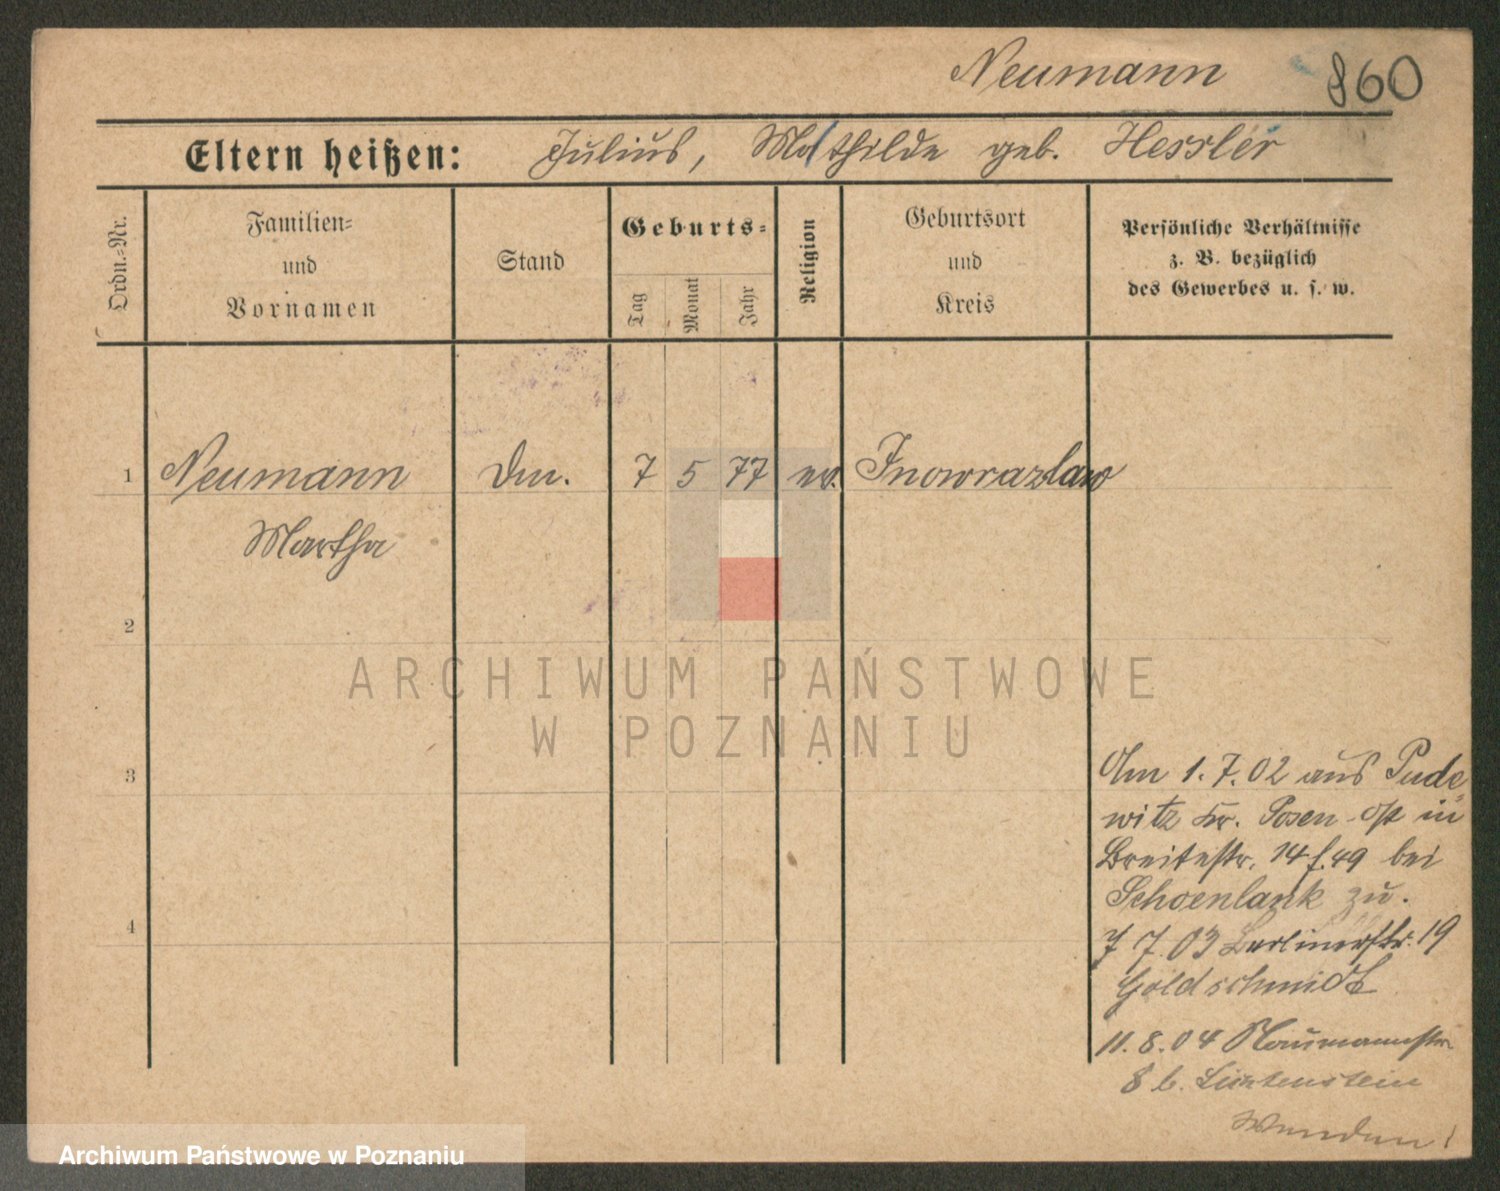 Neumann 860
Eltern heißen: Julius, Mathilde geb. Hessler
Ordn.-Nr.
Familien-
und
Vornamen
Stand
Geburts-
Tag
Monat
Jahr
Religion
Geburtsort
und
Kreis
Persönliche Verhältnisse
z. B. bezüglich
des Gewerbes u. s. w.
1 Neumann 7 5 77 ev. Inowrazlaw
Martha
2
3
4
Am 1.7.02 aus Pude-
witz Kr. Posen-Ost in
Breitestr. 14 bei
Schoenlank zu.
7 7. 03 Berlinerstr. 19
Goldschmidt
11.8.04 Naumannstr.
8 b. Lichtenstein
Wenden!
ARCHIWUM PAŃSTWOWE
W POZNANIU
Archiwum Państwowe w Poznaniu